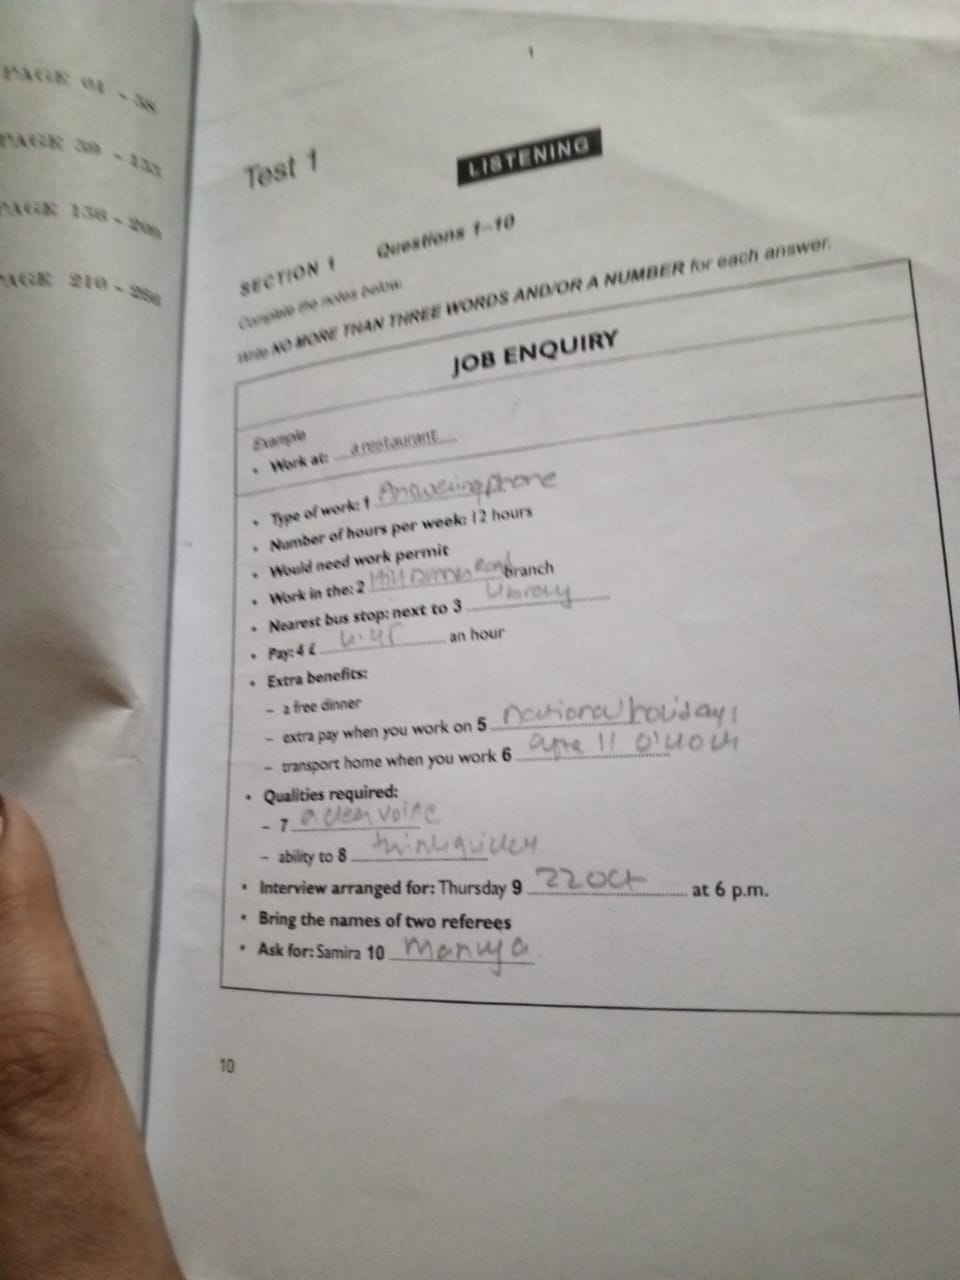 PAGE 01 - 38
PAGE 39 - 135
PAGE 136 - 209
PAGE 210 - 286
1
Test 1
LISTENING
SECTION 1 Questions 1–10
Complete the notes below.
Write NO MORE THAN THREE WORDS AND/OR A NUMBER for each answer.
JOB ENQUIRY
Example
• Work at: a restaurant
• Type of work: 1 Answering phone
• Number of hours per week: 12 hours
• Would need work permit
• Work in the: 2 branch
• Nearest bus stop: next to 3 Library
• Pay: 4 £ an hour
• Extra benefits:
– a free dinner
– extra pay when you work on 5 national holidays
– transport home when you work 6 11
• Qualities required:
– 7 a clear voice
– ability to 8 think
• Interview arranged for: Thursday 9 22 Oct at 6 p.m.
• Bring the names of two referees
• Ask for: Samira 10 Manuja
10